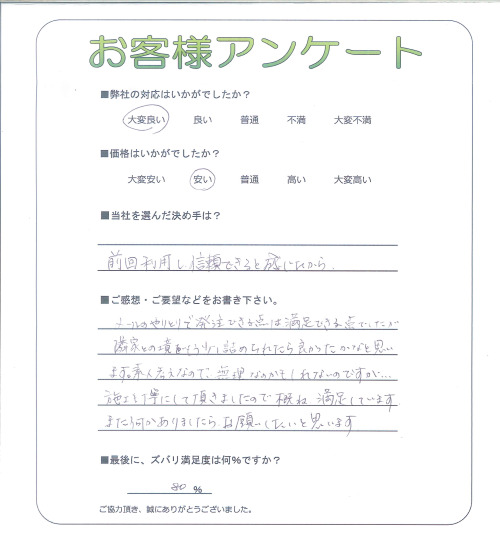 お客様アンケート
■弊社の対応はいかがでしたか？
大変良い 良い 普通 不満 大変不満
■価格はいかがでしたか？
大変安い 安い 普通 高い 大変高い
■当社を選んだ決め手は？
前回利用し信頼できると感じたから。
■ご感想・ご要望などをお書き下さい。
メールのやりとりで発注できる点は満足できる点でしたが
隣家との境がもう少し詰められたら良かったかなと思い
ます。素人考えなので、無理なのかもしれないのですが…
施工も丁寧にして頂きましたので概ね満足しています
また何かありましたらお願いしたいと思います
■最後に、ズバリ満足度は何%ですか？
80 %
ご協力頂き、誠にありがとうございました。